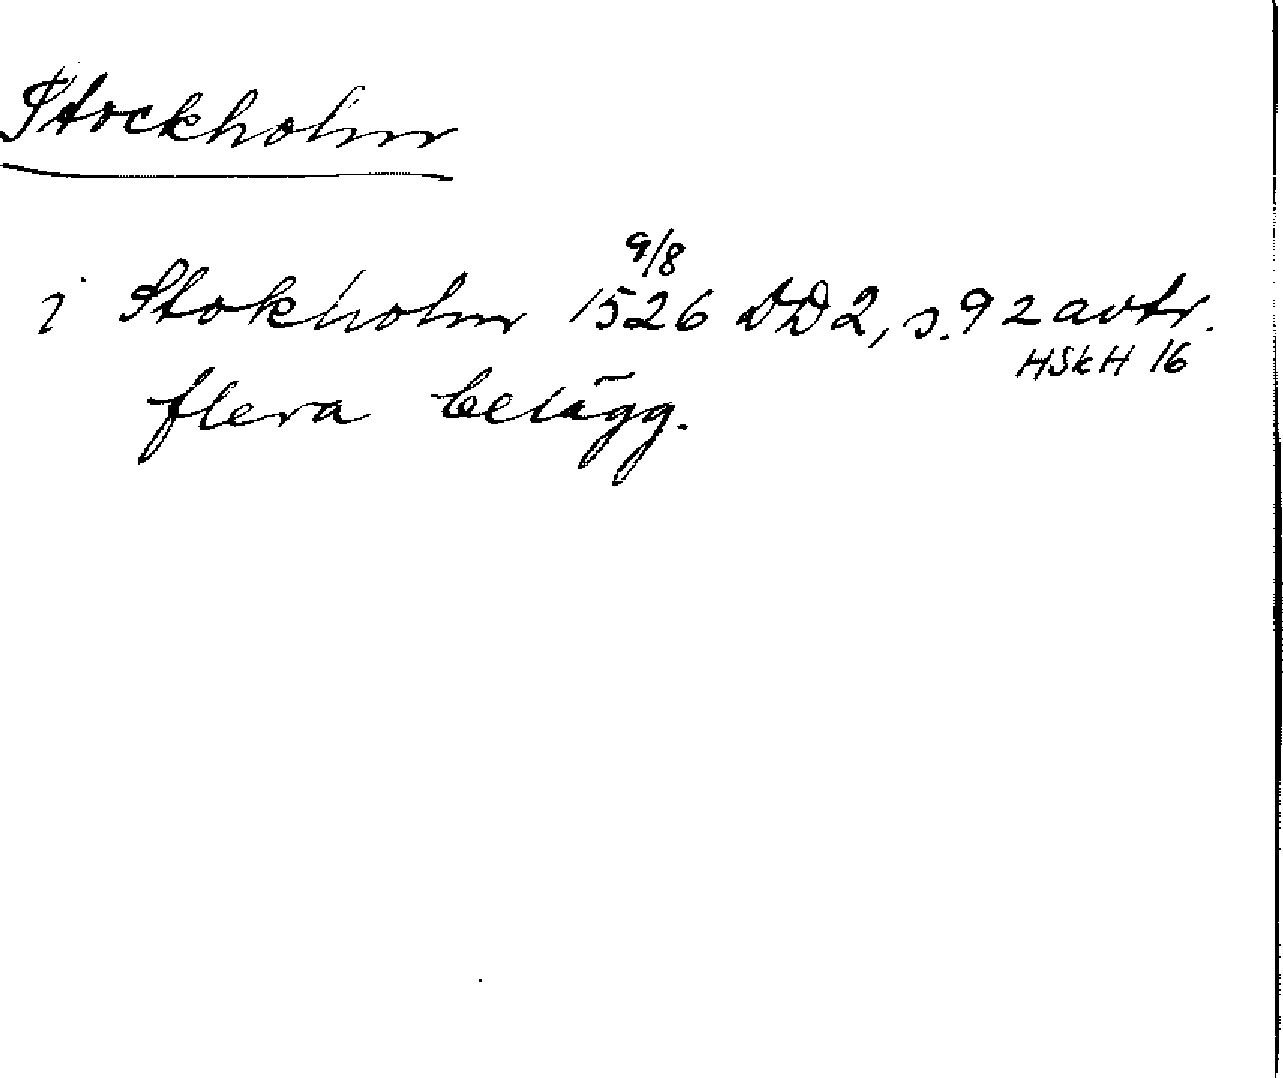 Stockholm
9/8
i Stokholm 1526 DD2, s. 92 avtr.
HSkH 16
flera belägg.